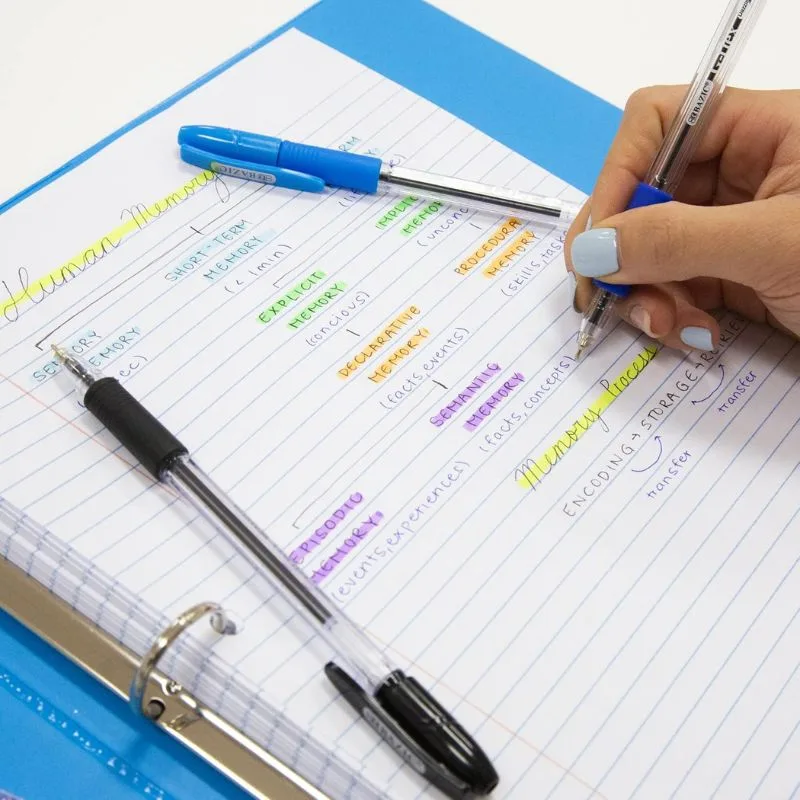 Human Memory
SHORT-TERM
MEMORY
(<1min)
MEMORY
EXPLICIT
MEMORY
(concious)
PROCEDURA
MEMORY
(skills, task
DECLARATIVE
MEMORY
(facts, events)
SEMANTIC
MEMORY
(facts, concepts)
EPISODIC
MEMORY
(events, experiences)
Memory Process
ENCODING → STORAGE → RETRIE
transfer
transfer
BAZIC
BAZIC
BAZIC